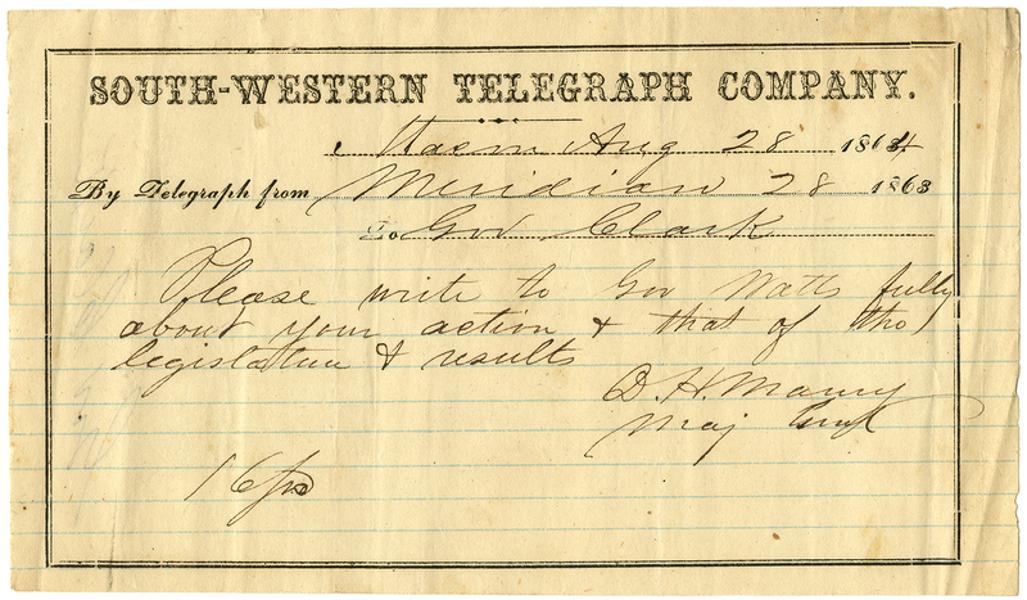 SOUTH-WESTERN TELEGRAPH COMPANY.
Macon Aug 28 1864
By Telegraph from Meridian 28 1863
To Gov Clark
Please write to Gov Watts fully
about your action & that of the
legislature & results
D. H. Maury
Maj Genl